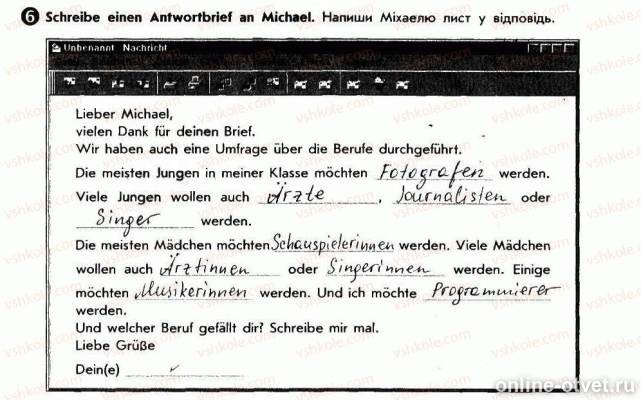 6 Schreibe einen Antwortbrief an Michael. Напиши Міхаелю лист у відповідь.
Unbenannt Nachricht
Lieber Michael,
vielen Dank für deinen Brief.
Wir haben auch eine Umfrage über die Berufe durchgeführt.
Die meisten Jungen in meiner Klasse möchten Fotografen werden.
Viele Jungen wollen auch Ärzte, Journalisten oder
Singer werden.
Die meisten Mädchen möchten Schauspielerinnen werden. Viele Mädchen
wollen auch Ärztinnen oder Singerinnen werden. Einige
möchten Musikerinnen werden. Und ich möchte Programmierer
werden.
Und welcher Beruf gefällt dir? Schreibe mir mal.
Liebe Grüße
Dein(e)
online-otvet.ru